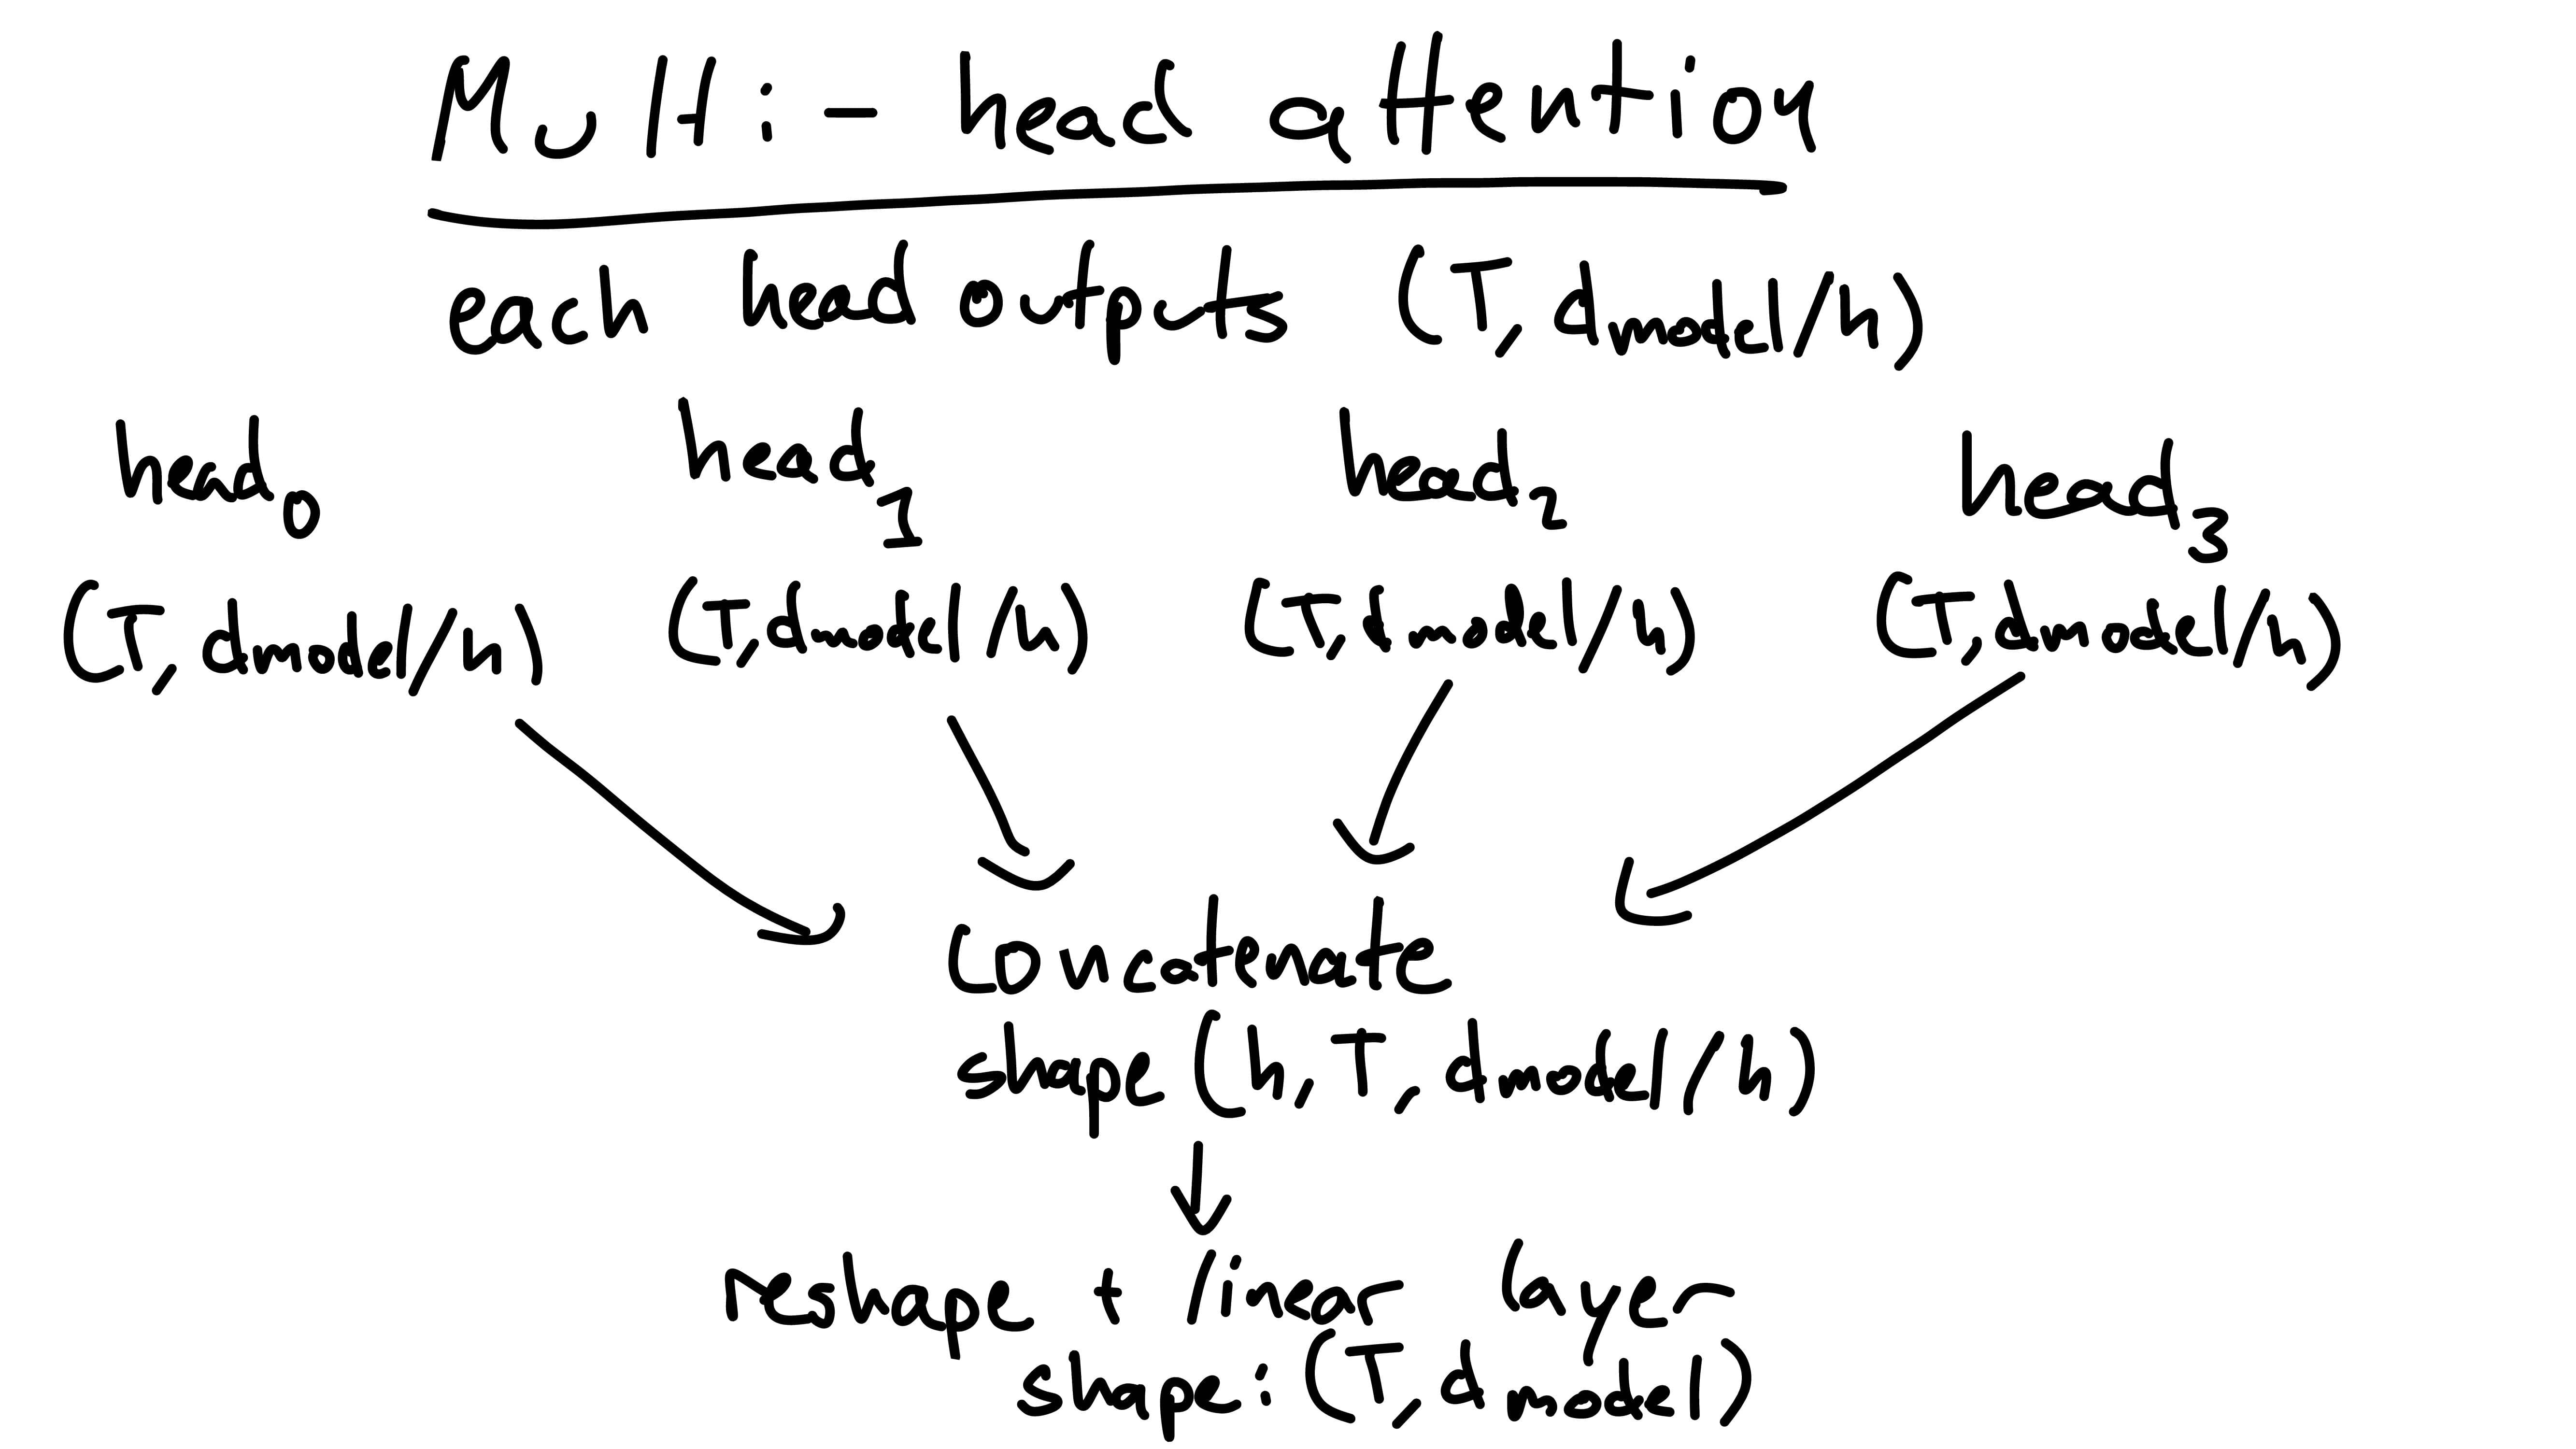 Multi-head attention
each head outputs (T, dmodel/h)
head0 head1 head2 head3
(T, dmodel/h) (T, dmodel/h) (T, dmodel/h) (T, dmodel/h)
concatenate
shape (h, T, dmodel/h)
reshape + linear layer
shape: (T, dmodel)